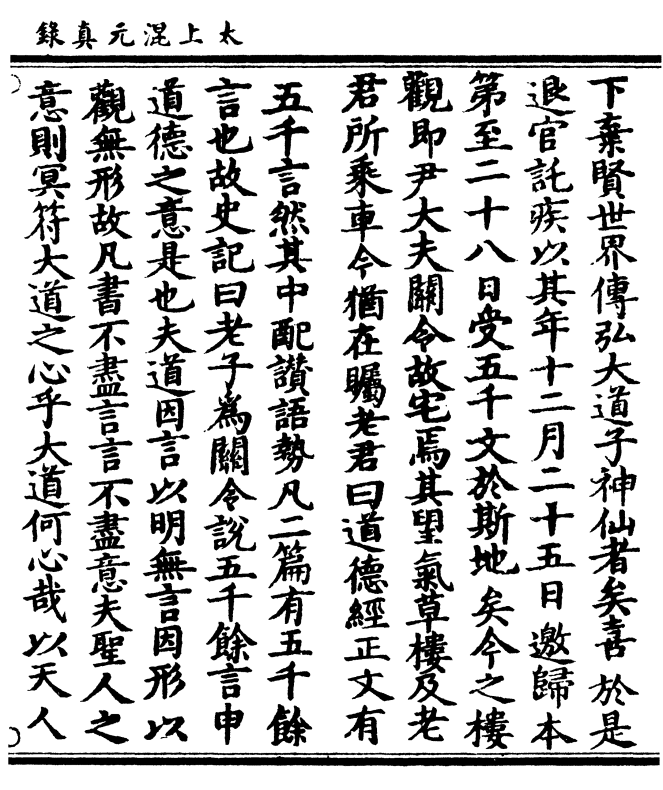 太上混元真錄
下棄賢世界傳弘大道子神仙者矣喜於是
退官託疾以其年十二月二十五日邀歸本
第至二十八日受五千文於斯地矣今之樓
觀即尹大夫關令故宅焉其望氣草樓及老
君所乘車令猶在矚老君曰道德經正文有
五千言然其中配讚語勢凡二篇有五千餘
言也故史記曰老子爲關令說五千餘言申
道德之意是也夫道因言以明無言因形以
觀無形故凡書不盡言言不盡意夫聖人之
意則冥符大道之心乎大道何心哉以天人